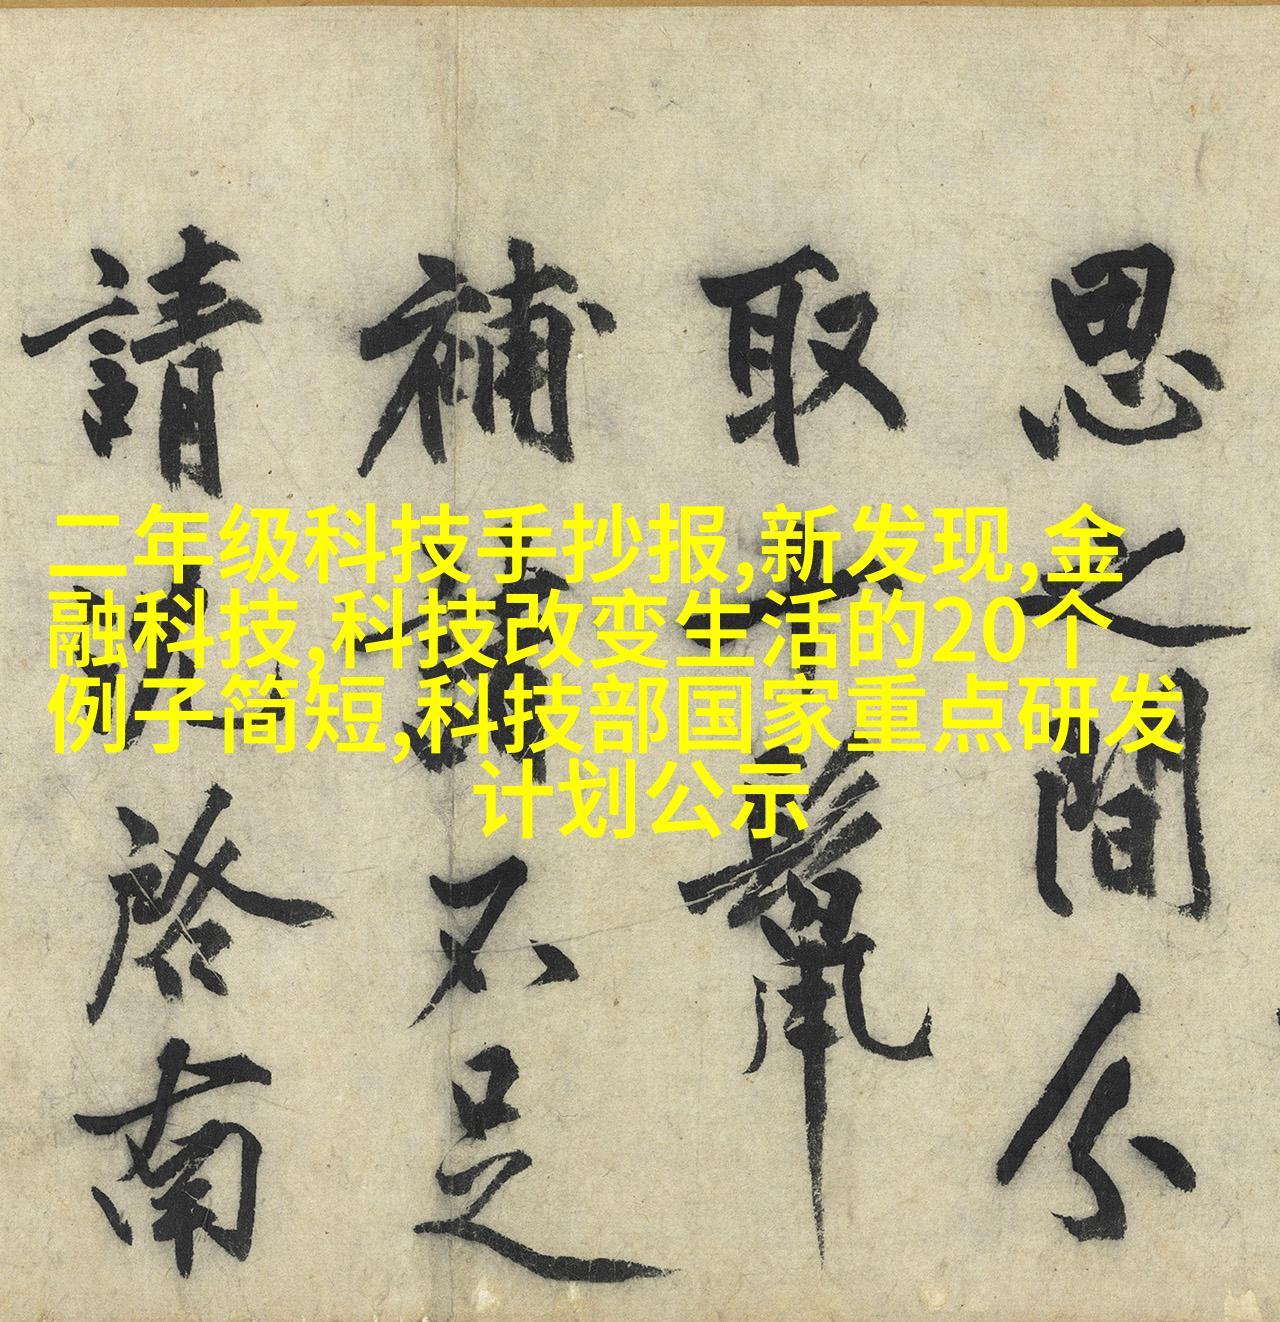 二年级科技手抄报,新发现,金
融科技,科技改变生活的20个
例子简短,科技部国家重点研发
计划公示
思之間分
取十鬣
補不足
請啓南